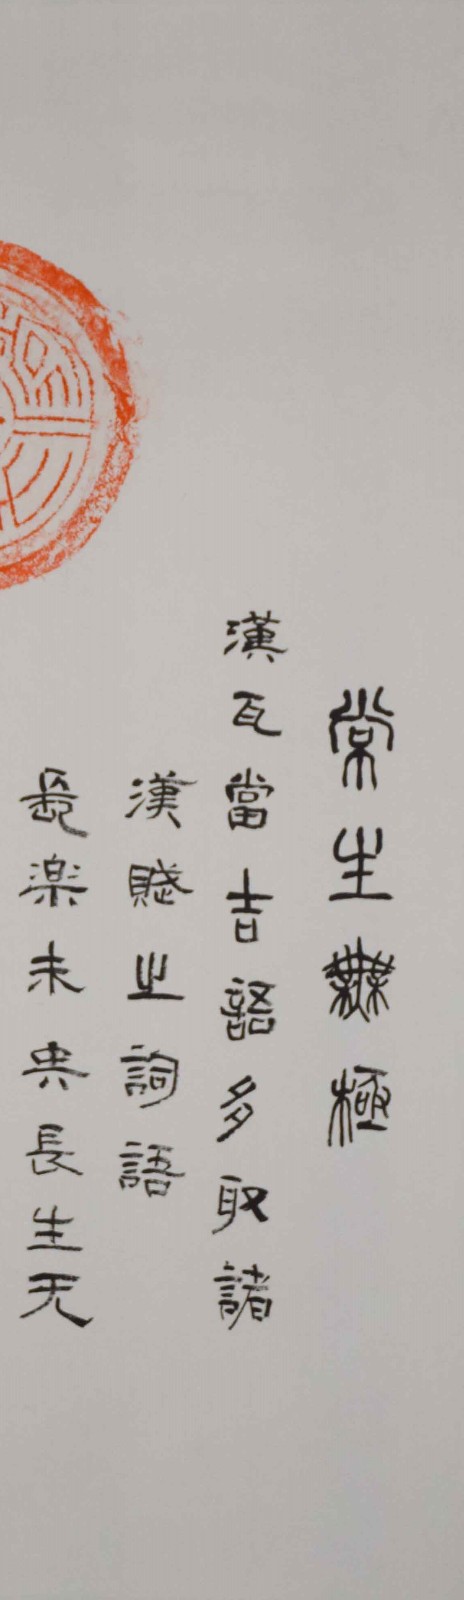 常生無極
漢瓦當吉語多取諸
漢賦之詞語
長楽未央長生无